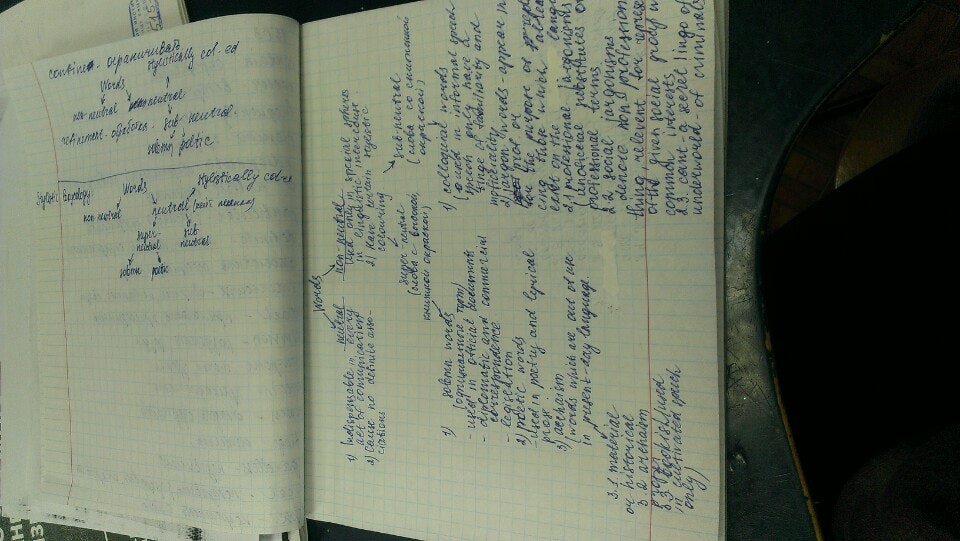 confine - ограничивать
stylistically col-ed
Words
non-neutral neutral
refinement - обработка - sub-neutral
solemn poetic
Words
stylistically col-ed
non-neutral
neutral
super-
neutral
sub-
neutral
solemn poetic
Words
neutral
1) Indispensable in every
act of comunication
2) Cause no definite asso-
ciations
non-neutral
used only in special spheres
of linguistic intercourse
2) Have certain stylistic
colouring
super-neutral
(слова с высокой
книжной окраской)
sub-neutral
(слова со сниженной
окраской)
1) solemn words
- used in official documents
- diplomatic and commercial
correspondence
- legislation
2) poetic words
- used in poetry and lyrical
prose
3) archaism
(words which are out of use
in present-day language
3.1 material
or historical
3.2 archaism
3.3 bookish (used
in cultivated speech
only)
1) colloquial words
(used in informal speech
speech only have a
tinge of familiarity and
words appear in
2.1 professional jargonisms
(unofficial substitutes of
professional terms
2.2 social jargonisms
denote non-profession
thing relevant for represe
of the given social group w
common interests
2.3 cant a secret lingo of
underworld - of criminals